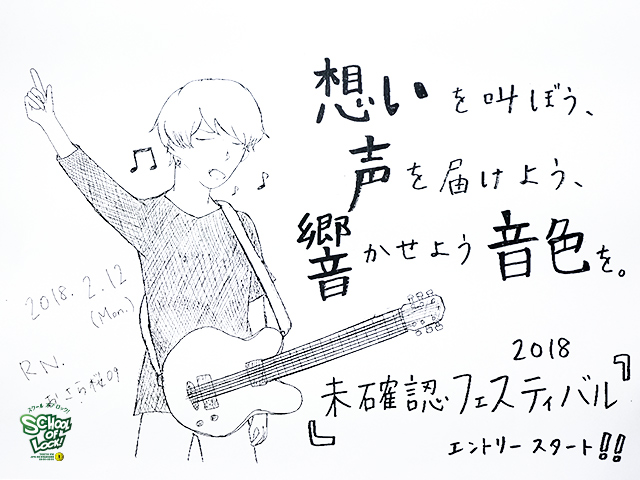 想いを叫ぼう、
声を届けよう、
響かせよう音色を。
2018
『未確認フェスティバル』
エントリースタート!!
2018.2.12
(Mon.)
R.N.
スクール オブ ロック!
SCHOOL
OF
LOCK!